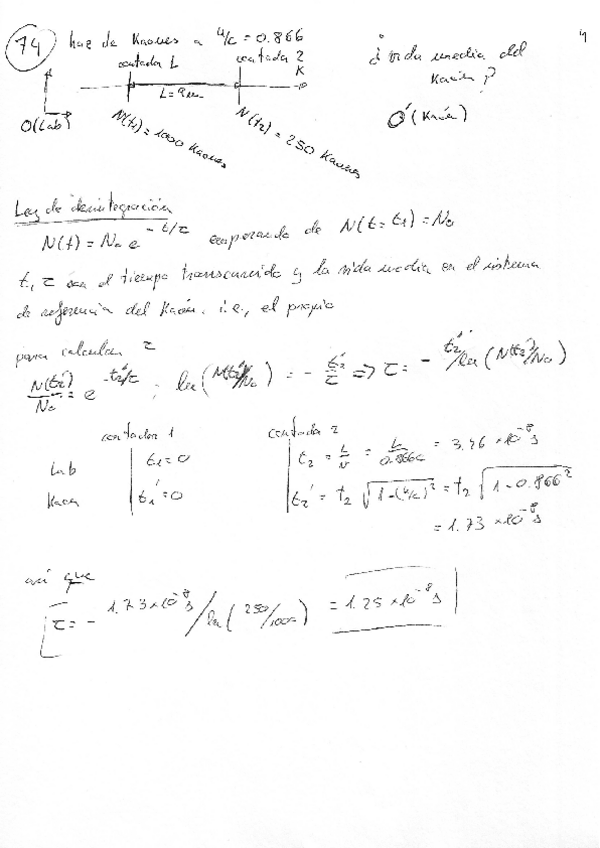 74 haz de Kaones a u/c = 0.866
4
contador 1 contador 2
¿vida media del Kaón?
K
L = 9m
O(Lab)
O'(Kaón)
N(t1) = 1000 Kaones
N(t2) = 250 Kaones
Ley de desintegración
N(t) = N0 e^-t/τ empezando de N(t=t1) = N0
t, τ son el tiempo transcurrido y la vida media en el sistema
de referencia del Kaón. i.e., el propio
para calcular τ
N(t2')/N0 = e^-t2'/τ ; ln(N(t2')/N0) = - t2'/τ => τ = - t2'/ln(N(t2')/N0)
contador 1 contador 2
Lab t1 = 0 t2 = L/v = L/0.866c = 3.46 × 10^-8 s
Kaón t1' = 0 t2' = t2 √1-(u/c)^2 = t2 √1-0.866^2
= 1.73 × 10^-8 s
así que
τ = - 1.73 × 10^-8 s / ln(250/1000) = 1.25 × 10^-8 s